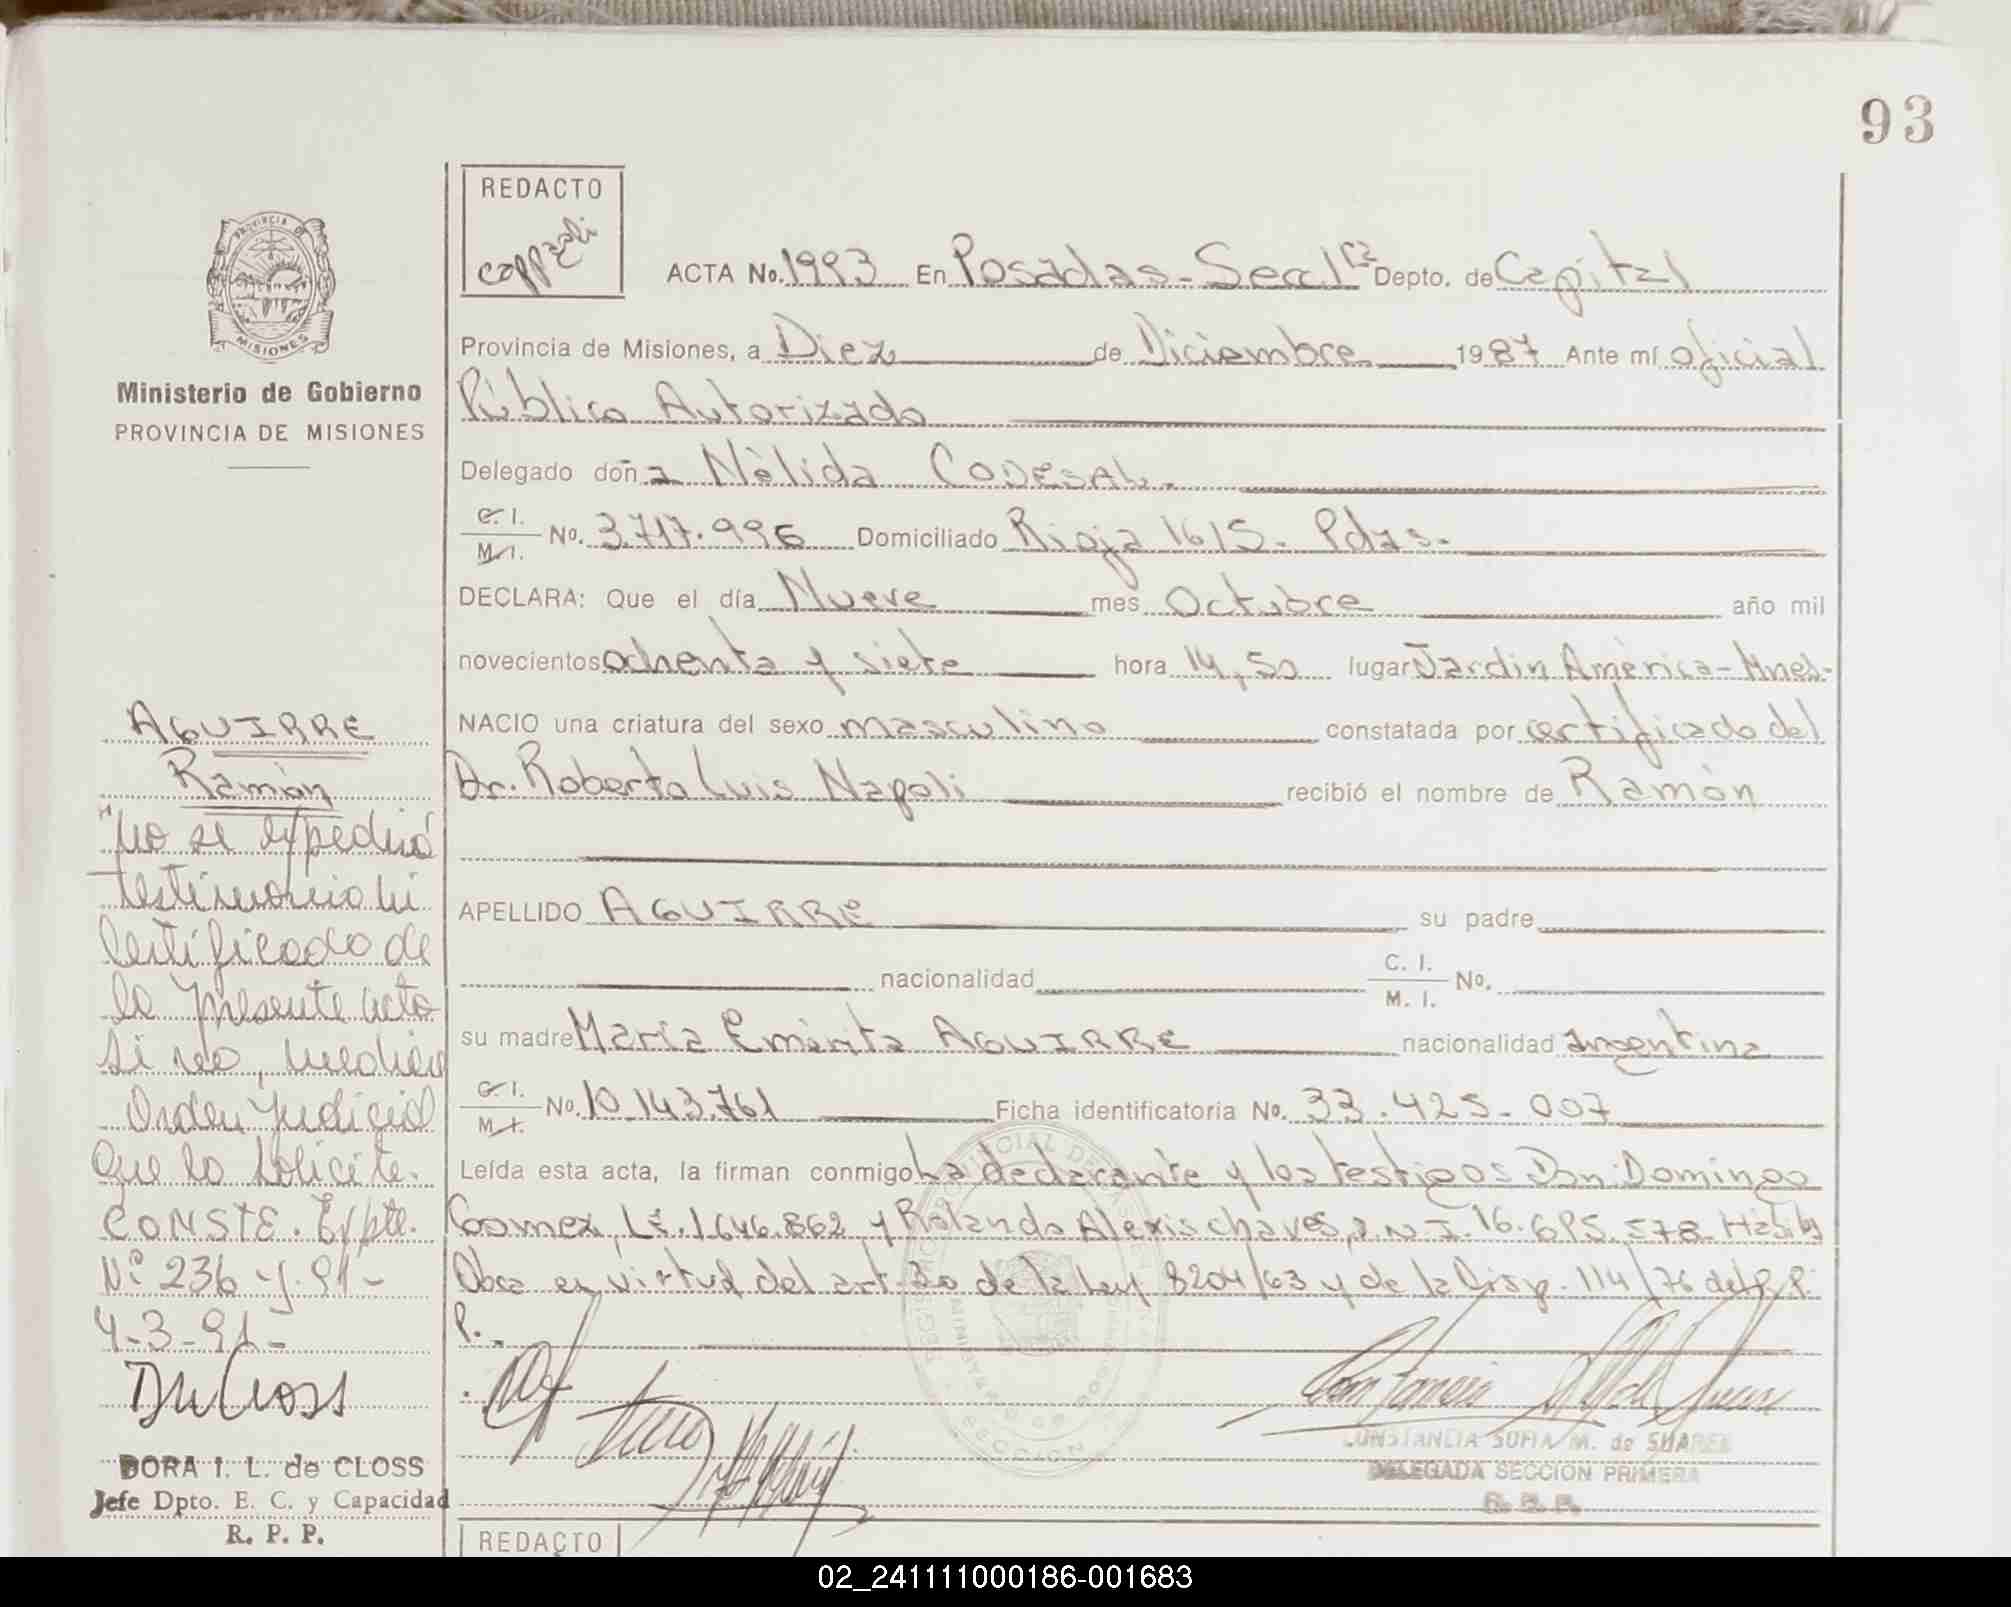 93
REDACTO
ACTA No. 1993 En Posadas - Secc. 1ra Depto. de Capital
PROVINCIA DE MISIONES
Provincia de Misiones, a Diez de Diciembre 1987 Ante mí oficial
Ministerio de Gobierno
PROVINCIA DE MISIONES
Público Autorizado
Delegado doña Nélida CODESAL.
C. I. / M. I. No. 3.717.996 Domiciliado Rioja 1615. Pdas.
DECLARA: Que el día Nueve mes Octubre año mil
novecientos ochenta y siete hora 14,50 lugar Jardín América - Mnes-
NACIO una criatura del sexo masculino constatada por certificado del
Dr. Roberto Luis Napoli recibió el nombre de Ramón
APELLIDO AGUIRRE su padre
nacionalidad C. I. / M. I. No.
su madre María Emérita AGUIRRE nacionalidad argentina
C. I. / M. I. No. 10.143.761 Ficha identificatoria No. 33.425.007
Leída esta acta, la firman conmigo La declarante y los testigos Don: Domingo
L.E. 1.646.862 y Rolando Alexis Chaves, D.N.I. 16.695.578
Obra en virtud del art. 30 de la Ley 8204/63 y de la Disp. 114/76 del R.P.
P.
AGUIRRE
Ramón
"No se expedirá
testimonio ni
certificado de
la presente acta
si no, media
Orden Judicial
que lo solicite.
CONSTE. Expte.
Nº 236 y. 91-
4-3-91-
DORA I. L. de CLOSS
Jefe Dpto. E. C. y Capacidad
R. P. P.
CONSTANCIA SOFIA M. de SUAREZ
DELEGADA SECCION PRIMERA
R. P. P.
REDACTO
02_241111000186-001683